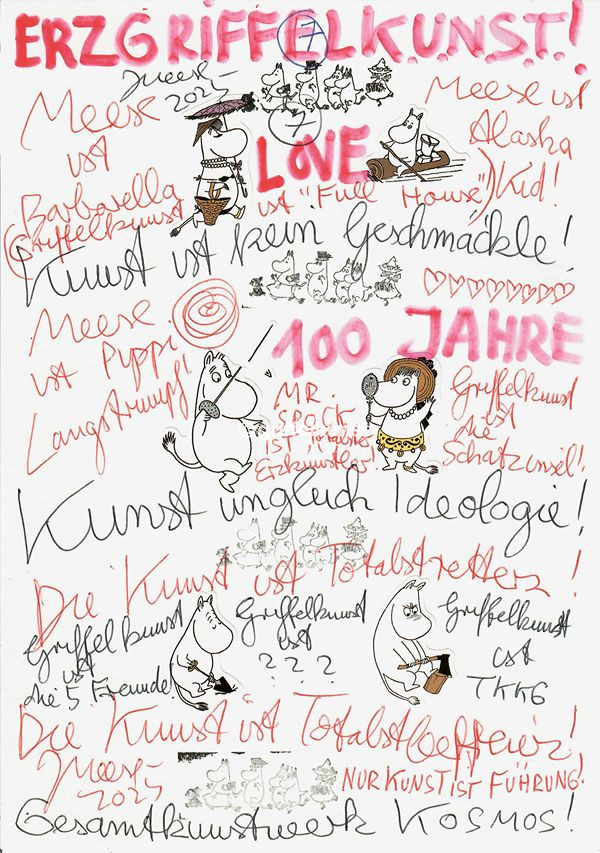 ERZGRIFFELKUNST!
7
Meese
2025
7
Meese
ist
Barbarella
LOVE
Meese ist
Alaska
Kid!
(Griffelkunst ist "Full House")
Kunst ist kein Geschmäckle!
Meese
ist Pippi
Langstrumpf!
100 JAHRE
MR.
SPOCK
IST totalster
Erzkünstler!
Griffelkunst
ist
die
Schatzinsel!
Kunst ungleich Ideologie!
Die Kunst ist Totalstretterz!
Griffelkunst
ist
die 5 Freunde!
Griffelkunst
ist
? ? ?
Griffelkunst
ist
TKKG
Die Kunst ist
Meese
2025
NUR KUNST IST FÜHRUNG!
Gesamtkunstwerk KOSMOS!